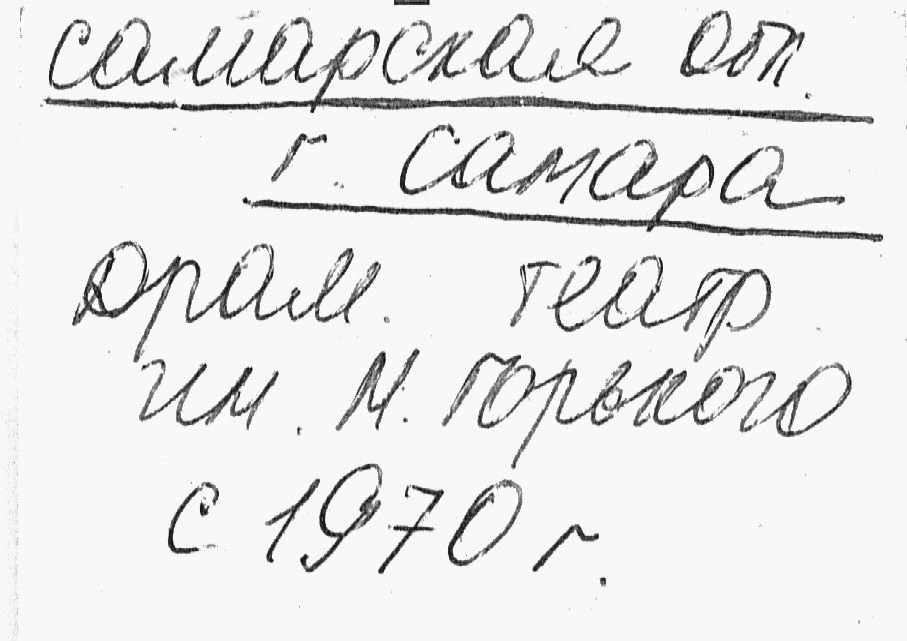 самарская отк.
г. самара
драм. театр
им. М. Горького
с 1970 г.